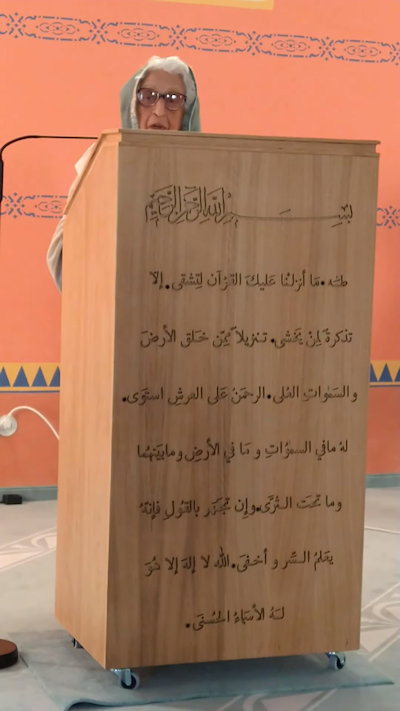 بِسْمِ اللهِ الرَّحْمٰنِ الرَّحِيْمِ
طٰهٰ • مَا أنزلنَا عَليكَ القرْآن لِتشقى • إلا
تذكرةً لمِنْ يَخشى • تنزيلاً مِمّن خَلق الأرضَ
والسَمٰواتِ العُلى • الرحمَنُ عَلى العرشِ استَوى •
لهُ مافي السمٰوُاتِ و مَا في الأرضِ ومابيَنهُما
وما تحَتَ الـثرَّى • وإن تَجْهَر بالقولِ فإنهُ
يعَلمُ السّر و أخفىَ • اللهُ لا إلهَ إلا هُوَ
لـهُ الأسمَاءُ الحُسنىَ •